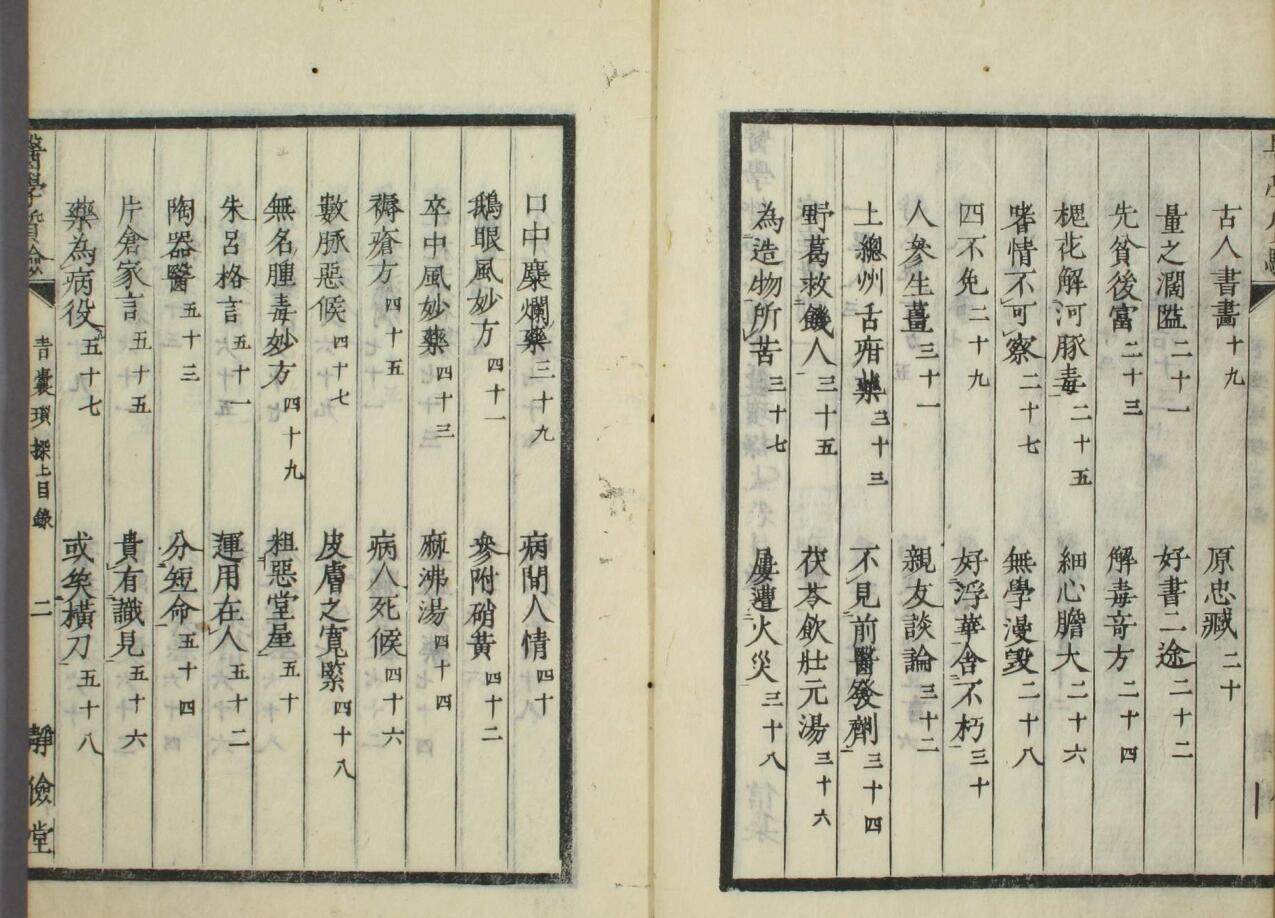 古人書畵十九　原忠臧二十
量之濶隘二十一　好書二途二十二
先貧後富二十三　解毒竒方二十四
槵花解河豚毒二十五　細心膽大二十六
嗜情不可察二十七　無學漫毀二十八
四不免二十九　好浮華舎不朽三十
人參生薑三十一　親友談論三十二
上總州舌疳藥三十三　不見前醫發劑三十四
野葛救饑人三十五　茯苓飲壯元湯三十六
為造物所苦三十七　屢遭火災三十八
口中糜爛藥三十九　病間人情四十
鵝眼風妙方四十一　參附硝黃四十二
卒中風妙藥四十三　麻沸湯四十四
褥瘡方四十五　病人死候四十六
數脉惡候四十七　皮膚之寬緊四十八
無名腫毒妙方四十九　粗惡堂星五十
朱呂格言五十一　運用在人五十二
陶器醫五十三　分短命五十四
片倉家言五十五　貴有識見五十六
藥為病役五十七　或矣橫刀五十八
醫學質驗　青囊瑣探上目錄　二　靜儉堂